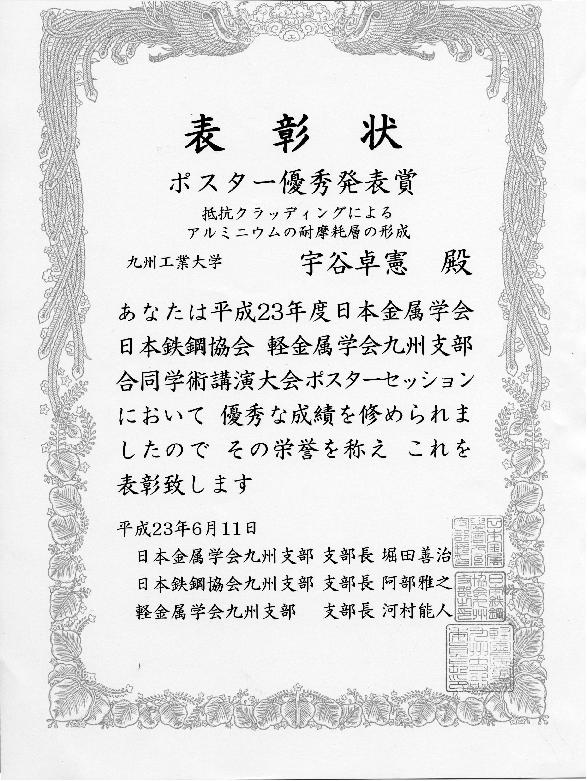 表彰状
ポスター優秀発表賞
抵抗クラッディングによる
アルミニウムの耐摩耗層の形成
九州工業大学 宇谷卓憲 殿
あなたは平成23年度日本金属学会
日本鉄鋼協会 軽金属学会九州支部
合同学術講演大会ポスターセッション
において 優秀な成績を修められま
したので その栄誉を称え これを
表彰致します
平成23年6月11日
日本金属学会九州支部 支部長 堀田善治
日本鉄鋼協会九州支部 支部長 阿部雅之
軽金属学会九州支部 支部長 河村能人